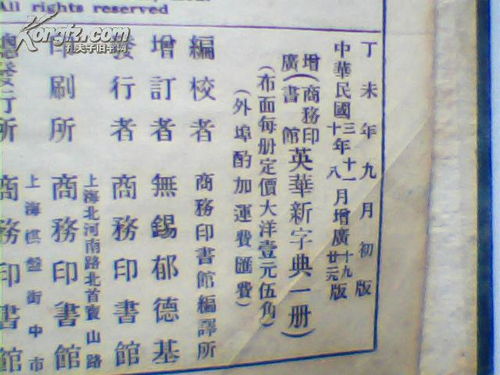 All rights reserved
丁未年九月初版
中華民國月增廣版
增廣(商務印書館)英華新字典一册)
(布面每册定價大洋壹元伍角)
(外埠酌加運費匯費)
編校者 商務印書館編譯所
增訂者 無錫郁德基
發行者 商務印書館
上海北河南路北首寶山路
印刷所 商務印書館
上海棋盤街中市
總發行所 商務印書館
孔夫子旧书网